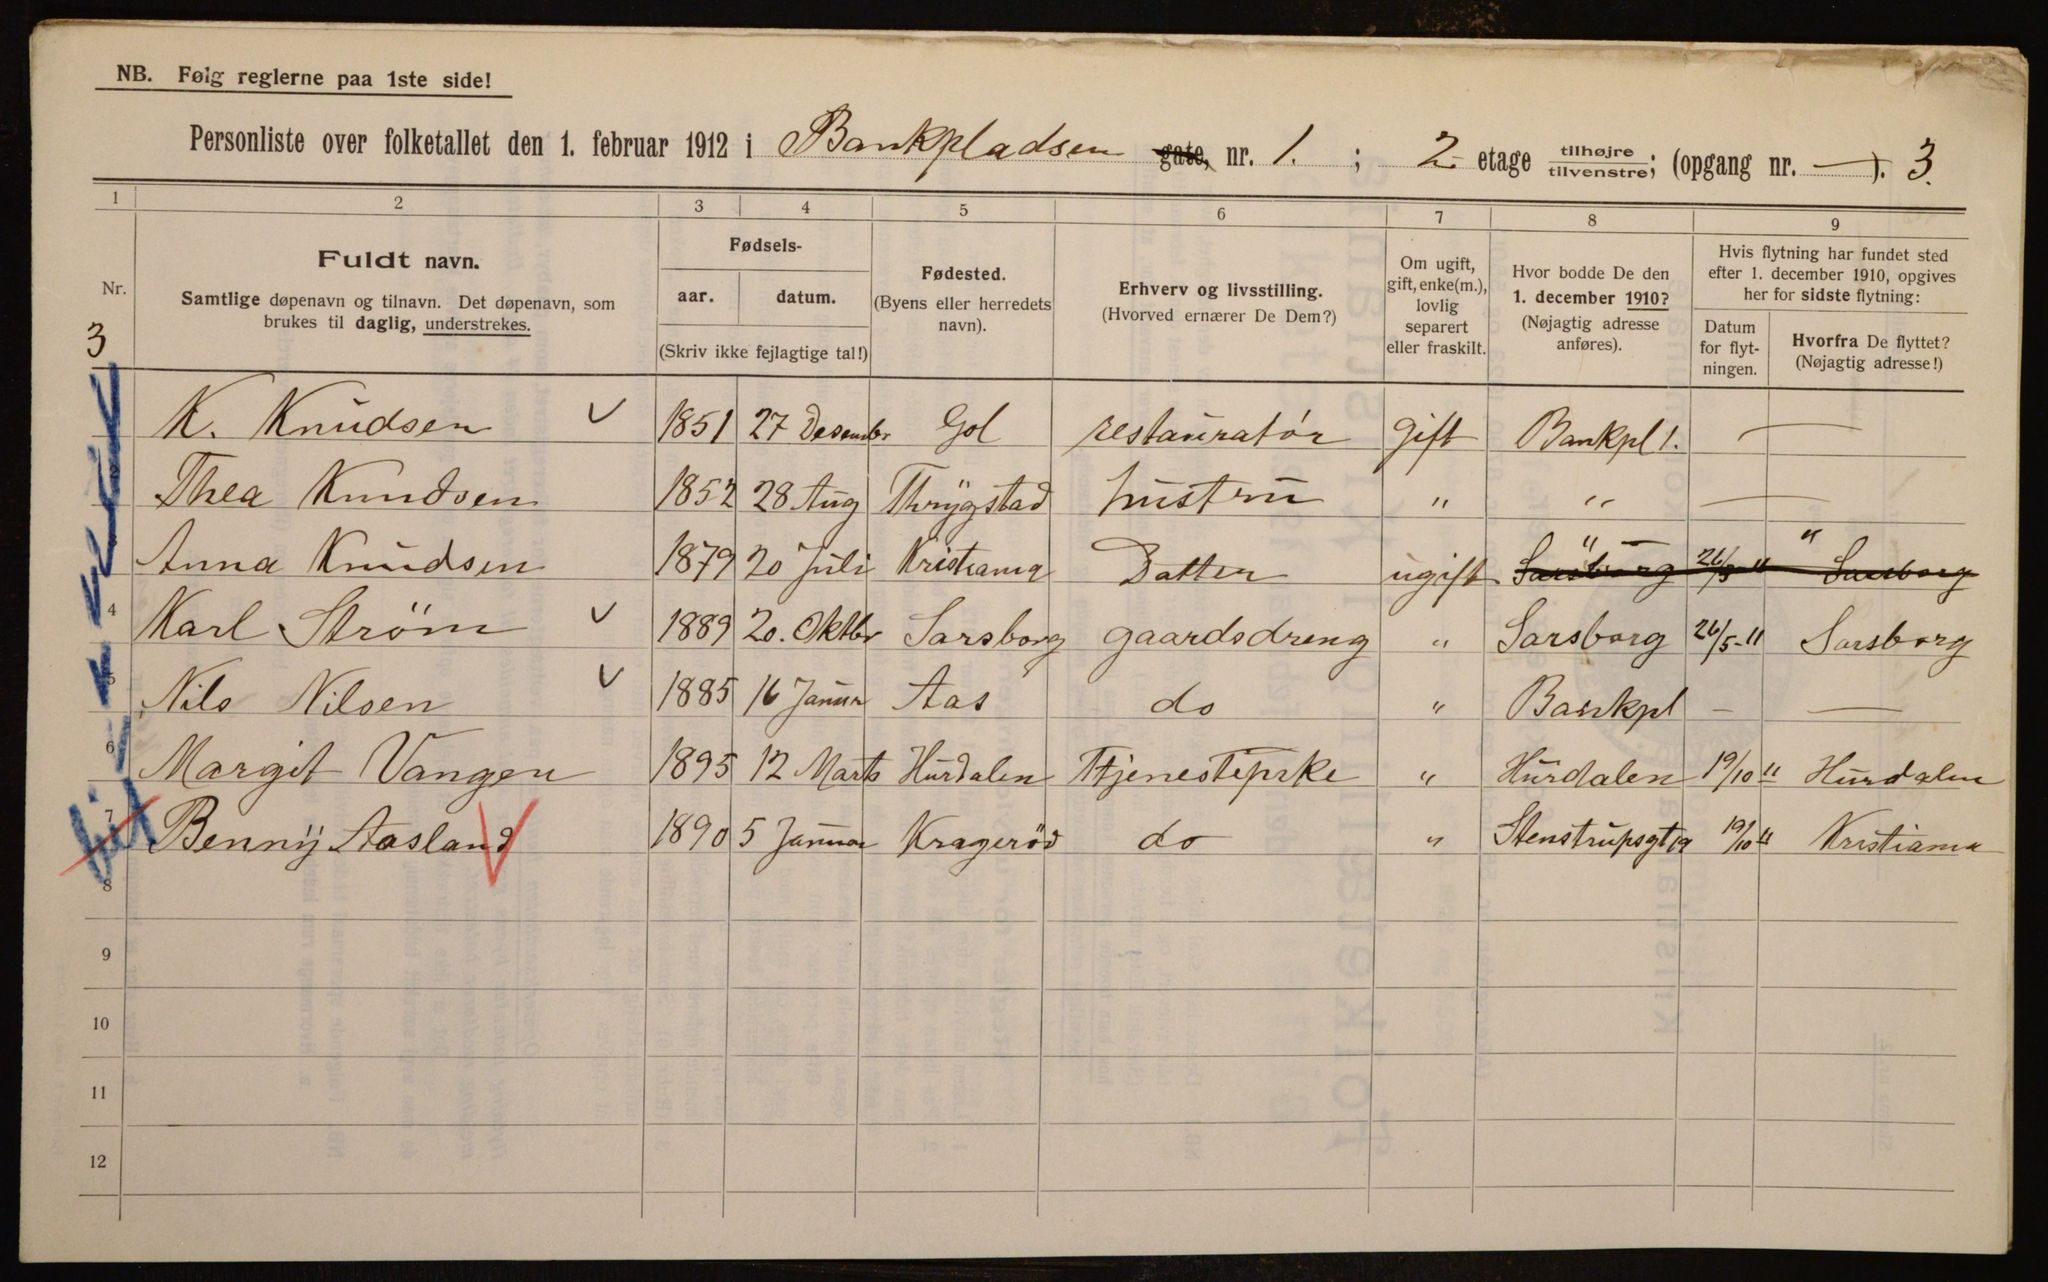 NB. Følg reglerne paa 1ste side!
Personliste over folketallet den 1. februar 1912 i Bankpladsen gate, nr. 1. ; 2 etage tilhøjre tilvenstre; (opgang nr. — ). 3.
1 2 3 4 5 6 7 8 9
Nr.
3
Fuldt navn.
Samtlige døpenavn og tilnavn. Det døpenavn, som
brukes til daglig, understrekes.
Fødsels-
aar. datum.
(Skriv ikke fejlagtige tal!)
Fødested.
(Byens eller herredets
navn).
Erhverv og livsstilling.
(Hvorved ernærer De Dem?)
Om ugift,
gift, enke(m.),
lovlig
separert
eller fraskilt.
Hvor bodde De den
1. december 1910?
(Nøjagtig adresse
anføres).
Hvis flytning har fundet sted
efter 1. december 1910, opgives
her for sidste flytning:
Datum
for flyt-
ningen.
Hvorfra De flyttet?
(Nøjagtig adresse!)
K. Knudsen 1851 27 Desember Gol restauratör gift Bankpl 1. —
Thea Knudsen 1852 28 Aug Thrygstad hustru " " —
Anna Knudsen 1879 20 Juli Kristiania Datter ugift " Sarsborg 26/5-11 " Sarsborg
4 Karl Strøm 1889 20. Oktbr Sarsborg gaardsdreng " Sarsborg 26/5-11 Sarsborg
5 Nils Nilsen 1885 16 Januar Aas do " Bankpl — —
6 Margit Vangen 1895 12 Marts Hurdalen Tjenestepike " Hurdalen 19/10 11 Hurdalen
7 Benny Aasland 1890 5 Januar Kragerö do " Stenstrupsgt 19 19/10 11 Kristiania
8
9
10
11
12